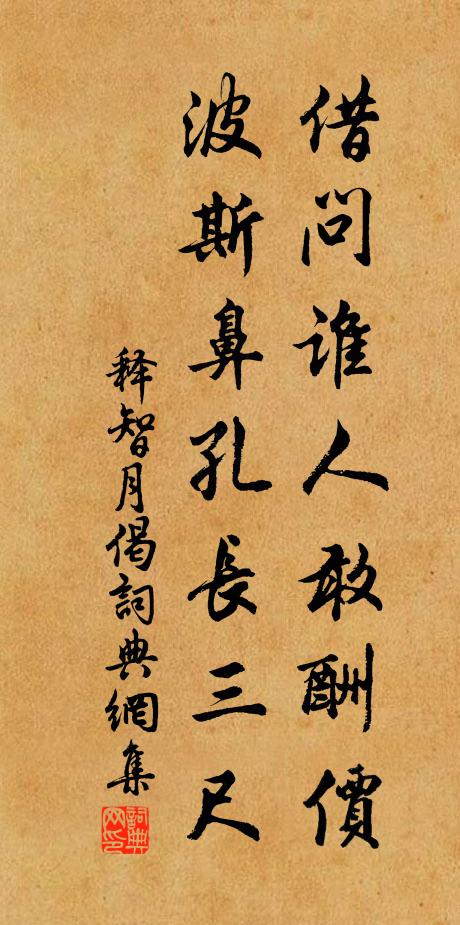 借問誰人敢酬價
波斯鼻孔長三尺
释智月偈詞典網集
詞典网印